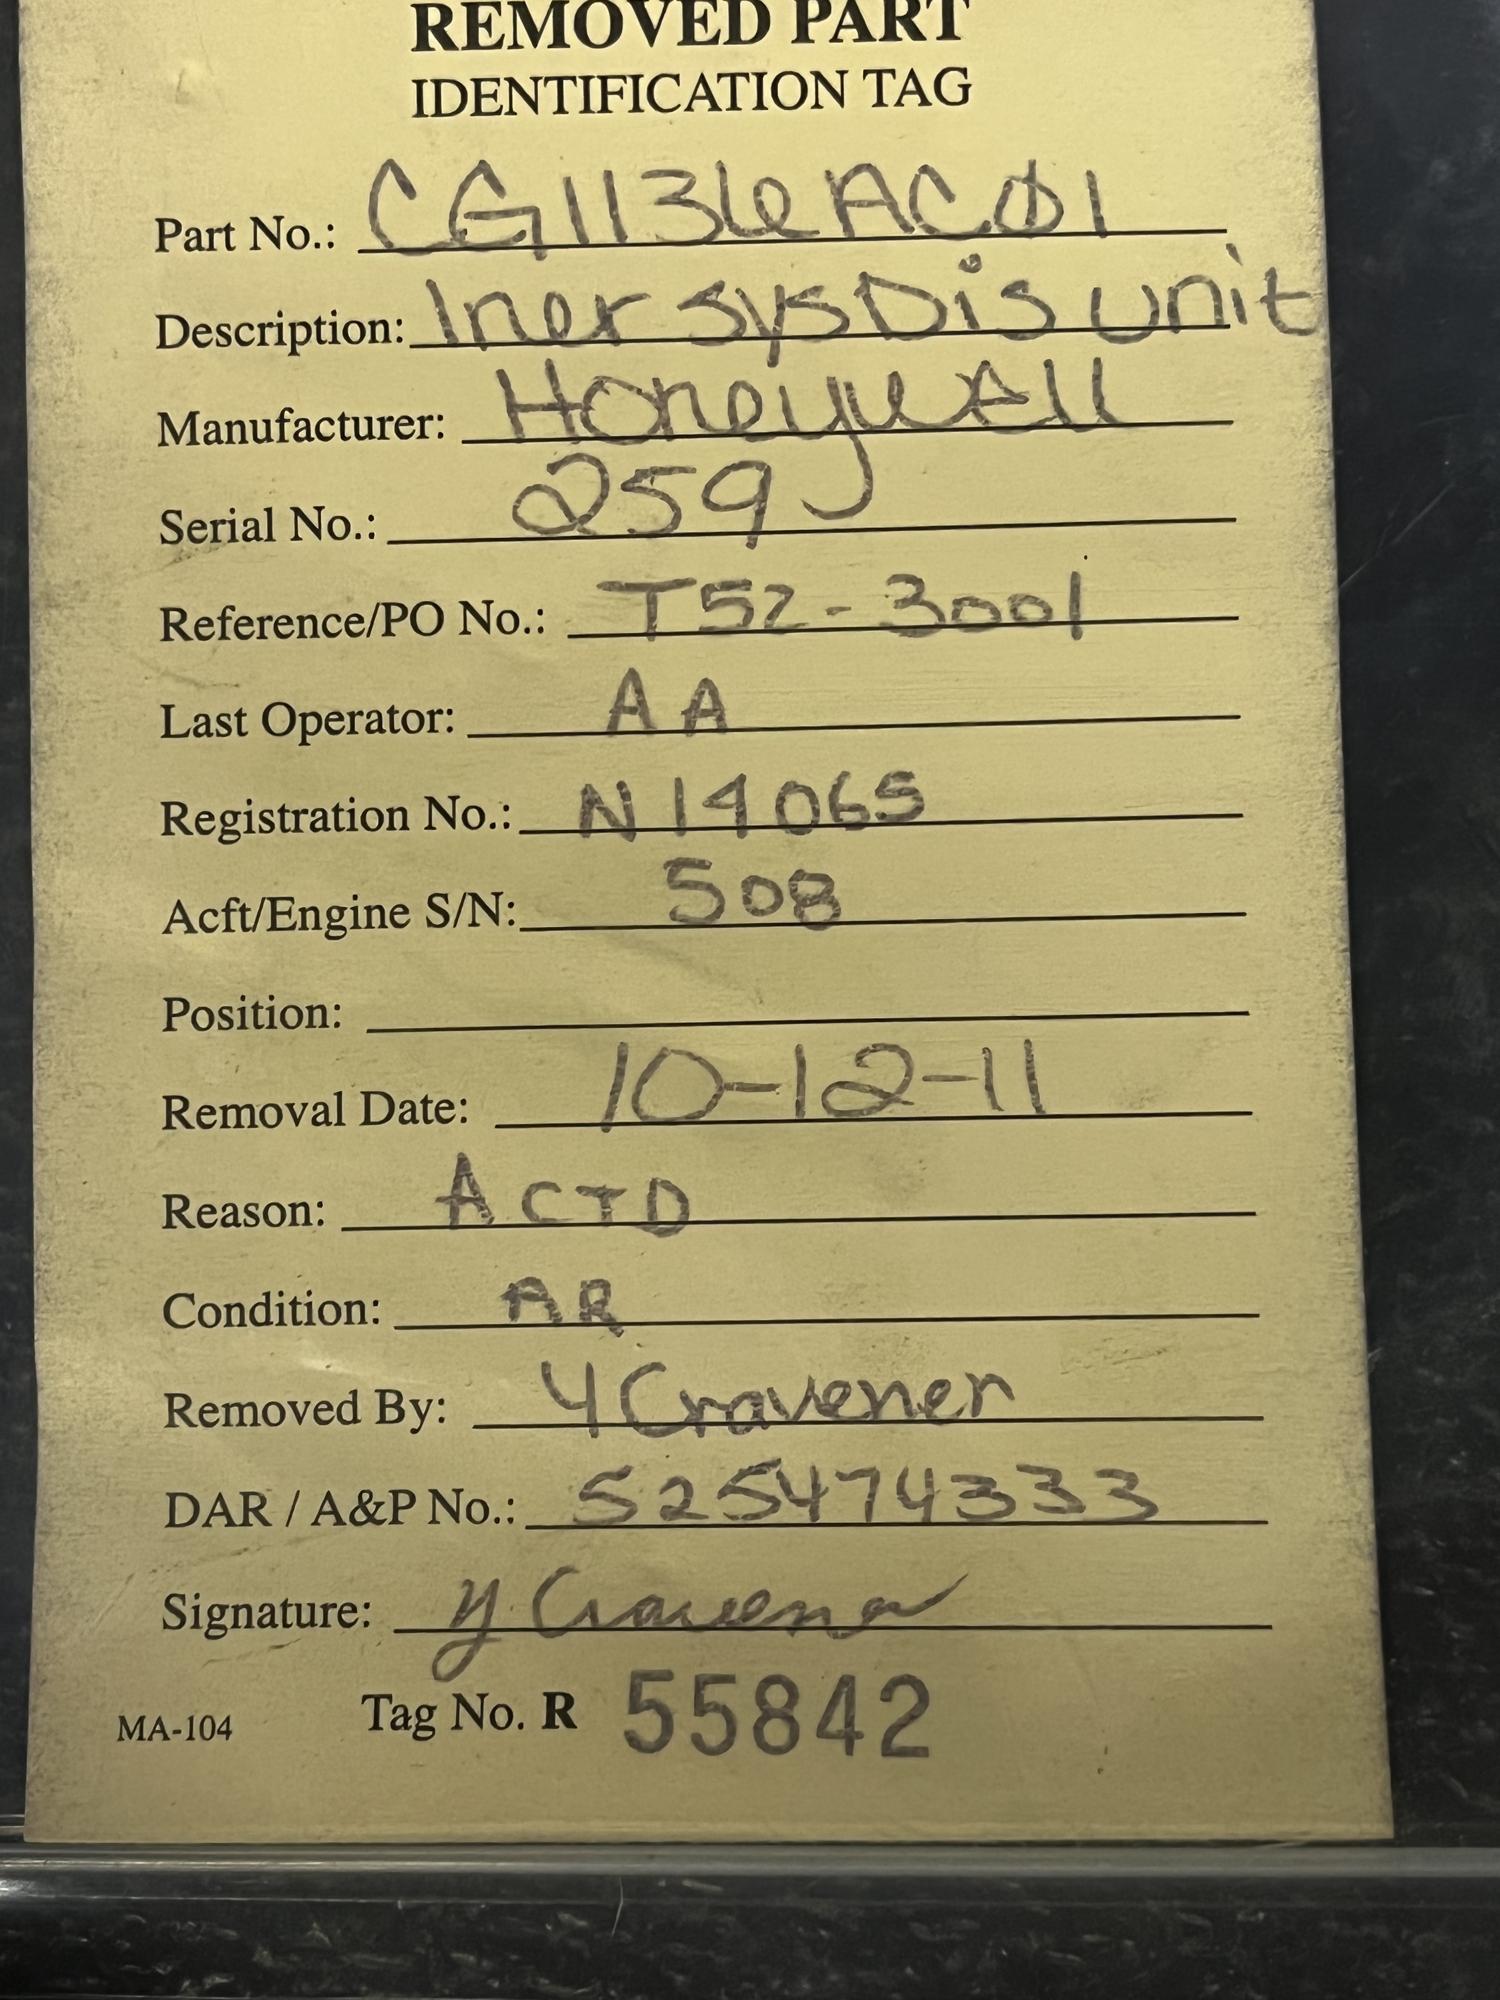 REMOVED PART
IDENTIFICATION TAG
Part No.: CG1136AC01
Description: Iner sys Dis unit
Manufacturer: Honeywell
Serial No.: 259
Reference/PO No.: T52-3001
Last Operator: AA
Registration No.: N14065
Acft/Engine S/N: 508
Position:
Removal Date: 10-12-11
Reason: ACTD
Condition: AR
Removed By: Y Cravener
DAR / A&P No.: 525474333
Signature: Y Cravener
MA-104 Tag No. R 55842